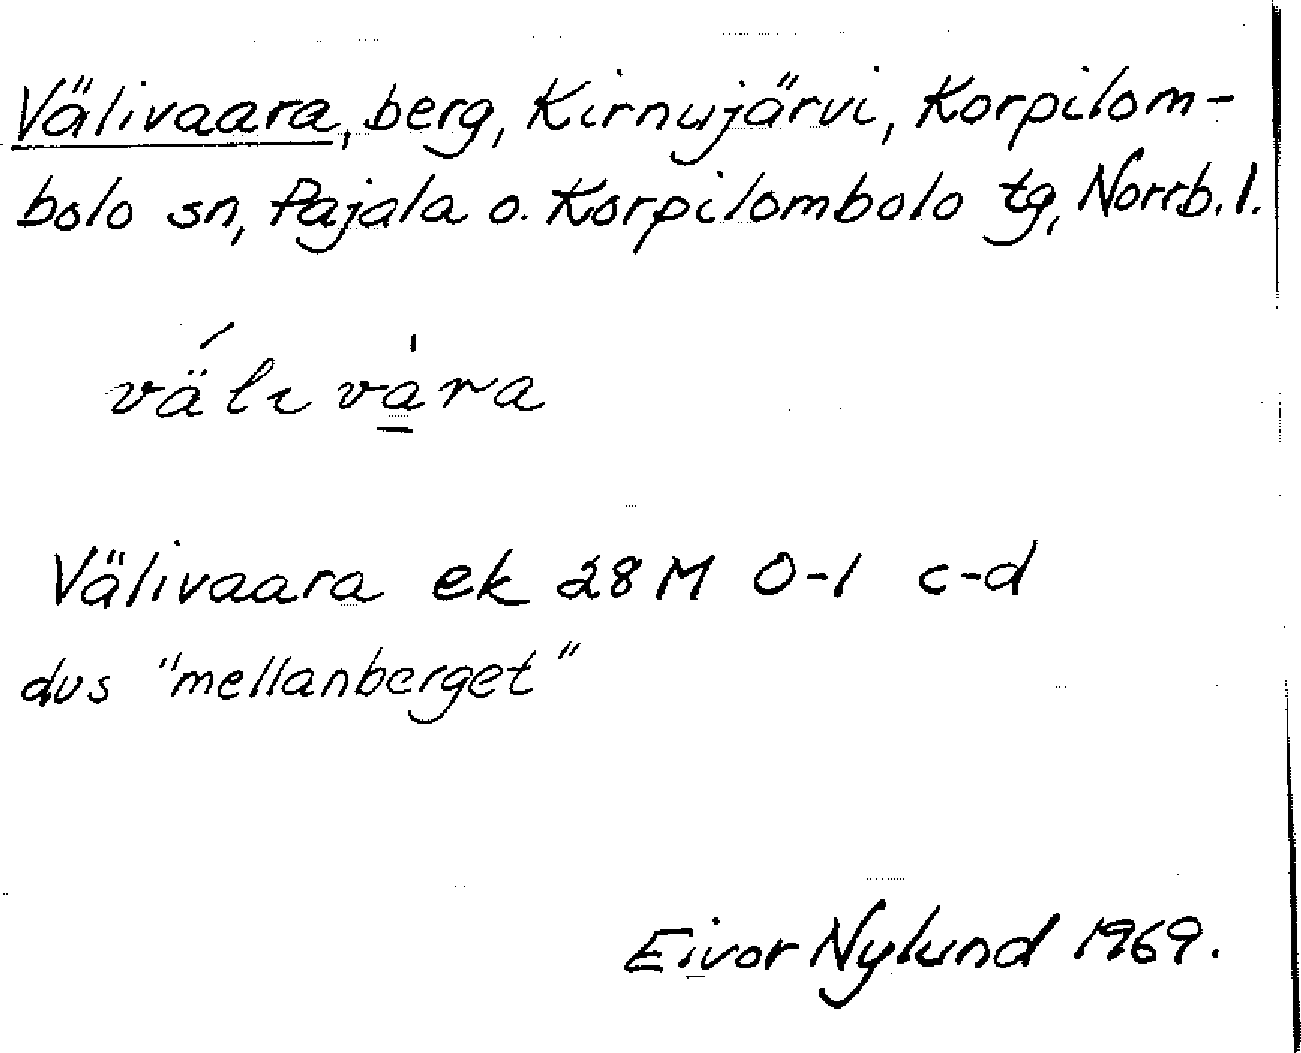 Välivaara, berg, Kirnujärvi, Korpilom-
bolo sn, Pajala o. Korpilombolo tg, Norrb. l.
välivara
Välivaara ek 28 M 0-1 c-d
dvs "mellanberget"
Eivor Nylund 1969.